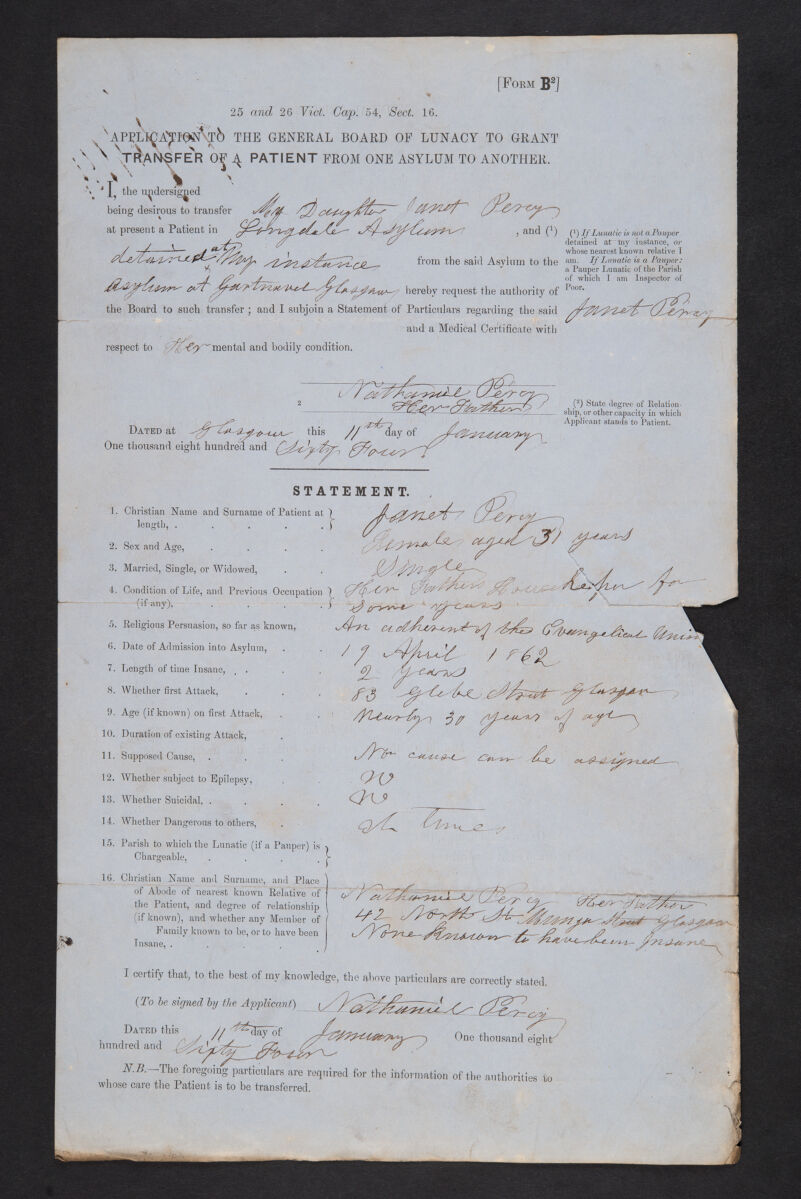 [FORM B²]
25 and 26 Vict. Cap. 54, Sect. 16.
APPLICATION TO THE GENERAL BOARD OF LUNACY TO GRANT
TRANSFER OF A PATIENT FROM ONE ASYLUM TO ANOTHER.
I, the undersigned
being desirous to transfer My Daughter Janet Percy
at present a Patient in Longdale Asylum, and (¹)
detained at My instance from the said Asylum to the
Asylum at Gartnavel Glasgow hereby request the authority of
the Board to such transfer; and I subjoin a Statement of Particulars regarding the said
Janet Percy
and a Medical Certificate with
respect to Her mental and bodily condition.
(¹) If Lunatic is not a Pauper
detained at my instance, or
whose nearest known relative I
am. If Lunatic is a Pauper:
a Pauper Lunatic of the Parish
of which I am Inspector of
Poor.
Nathaniel Percy
2 Her Father
(²) State degree of Relation-
ship, or other capacity in which
Applicant stands to Patient.
DATED at Glasgow this 11th day of January
One thousand eight hundred and Sixty Four.
STATEMENT.
1. Christian Name and Surname of Patient at
length, . . . . . Janet Percy
2. Sex and Age, . . . . Female aged 31 years
3. Married, Single, or Widowed, . . Single
4. Condition of Life, and Previous Occupation Her Fathers Housekeeper for
(if any), . . . . . some years
5. Religious Persuasion, so far as known, An adherent of the Evangelical Union
6. Date of Admission into Asylum, . . 19 April 1862
7. Length of time Insane, . . . 2 years
8. Whether first Attack, . . . 83 Glebe Street Glasgow
9. Age (if known) on first Attack, . . Nearly 30 years of age
10. Duration of existing Attack, .
11. Supposed Cause, . . . . No cause can be assigned
12. Whether subject to Epilepsy, . . No
13. Whether Suicidal, . . . . No
14. Whether Dangerous to others, . At times
15. Parish to which the Lunatic (if a Pauper) is
Chargeable, . . . .
16. Christian Name and Surname, and Place
of Abode of nearest known Relative of
the Patient, and degree of relationship
(if known), and whether any Member of
Family known to be, or to have been
Insane, . . . . .
Nathaniel Percy Her Father
42 North St Mungo Street Glasgow
None Known to have been Insane
I certify that, to the best of my knowledge, the above particulars are correctly stated.
(To be signed by the Applicant) Nathaniel Percy
DATED this 11th day of January One thousand eight
hundred and Sixty Four
N.B.—The foregoing particulars are required for the information of the authorities to
whose care the Patient is to be transferred.